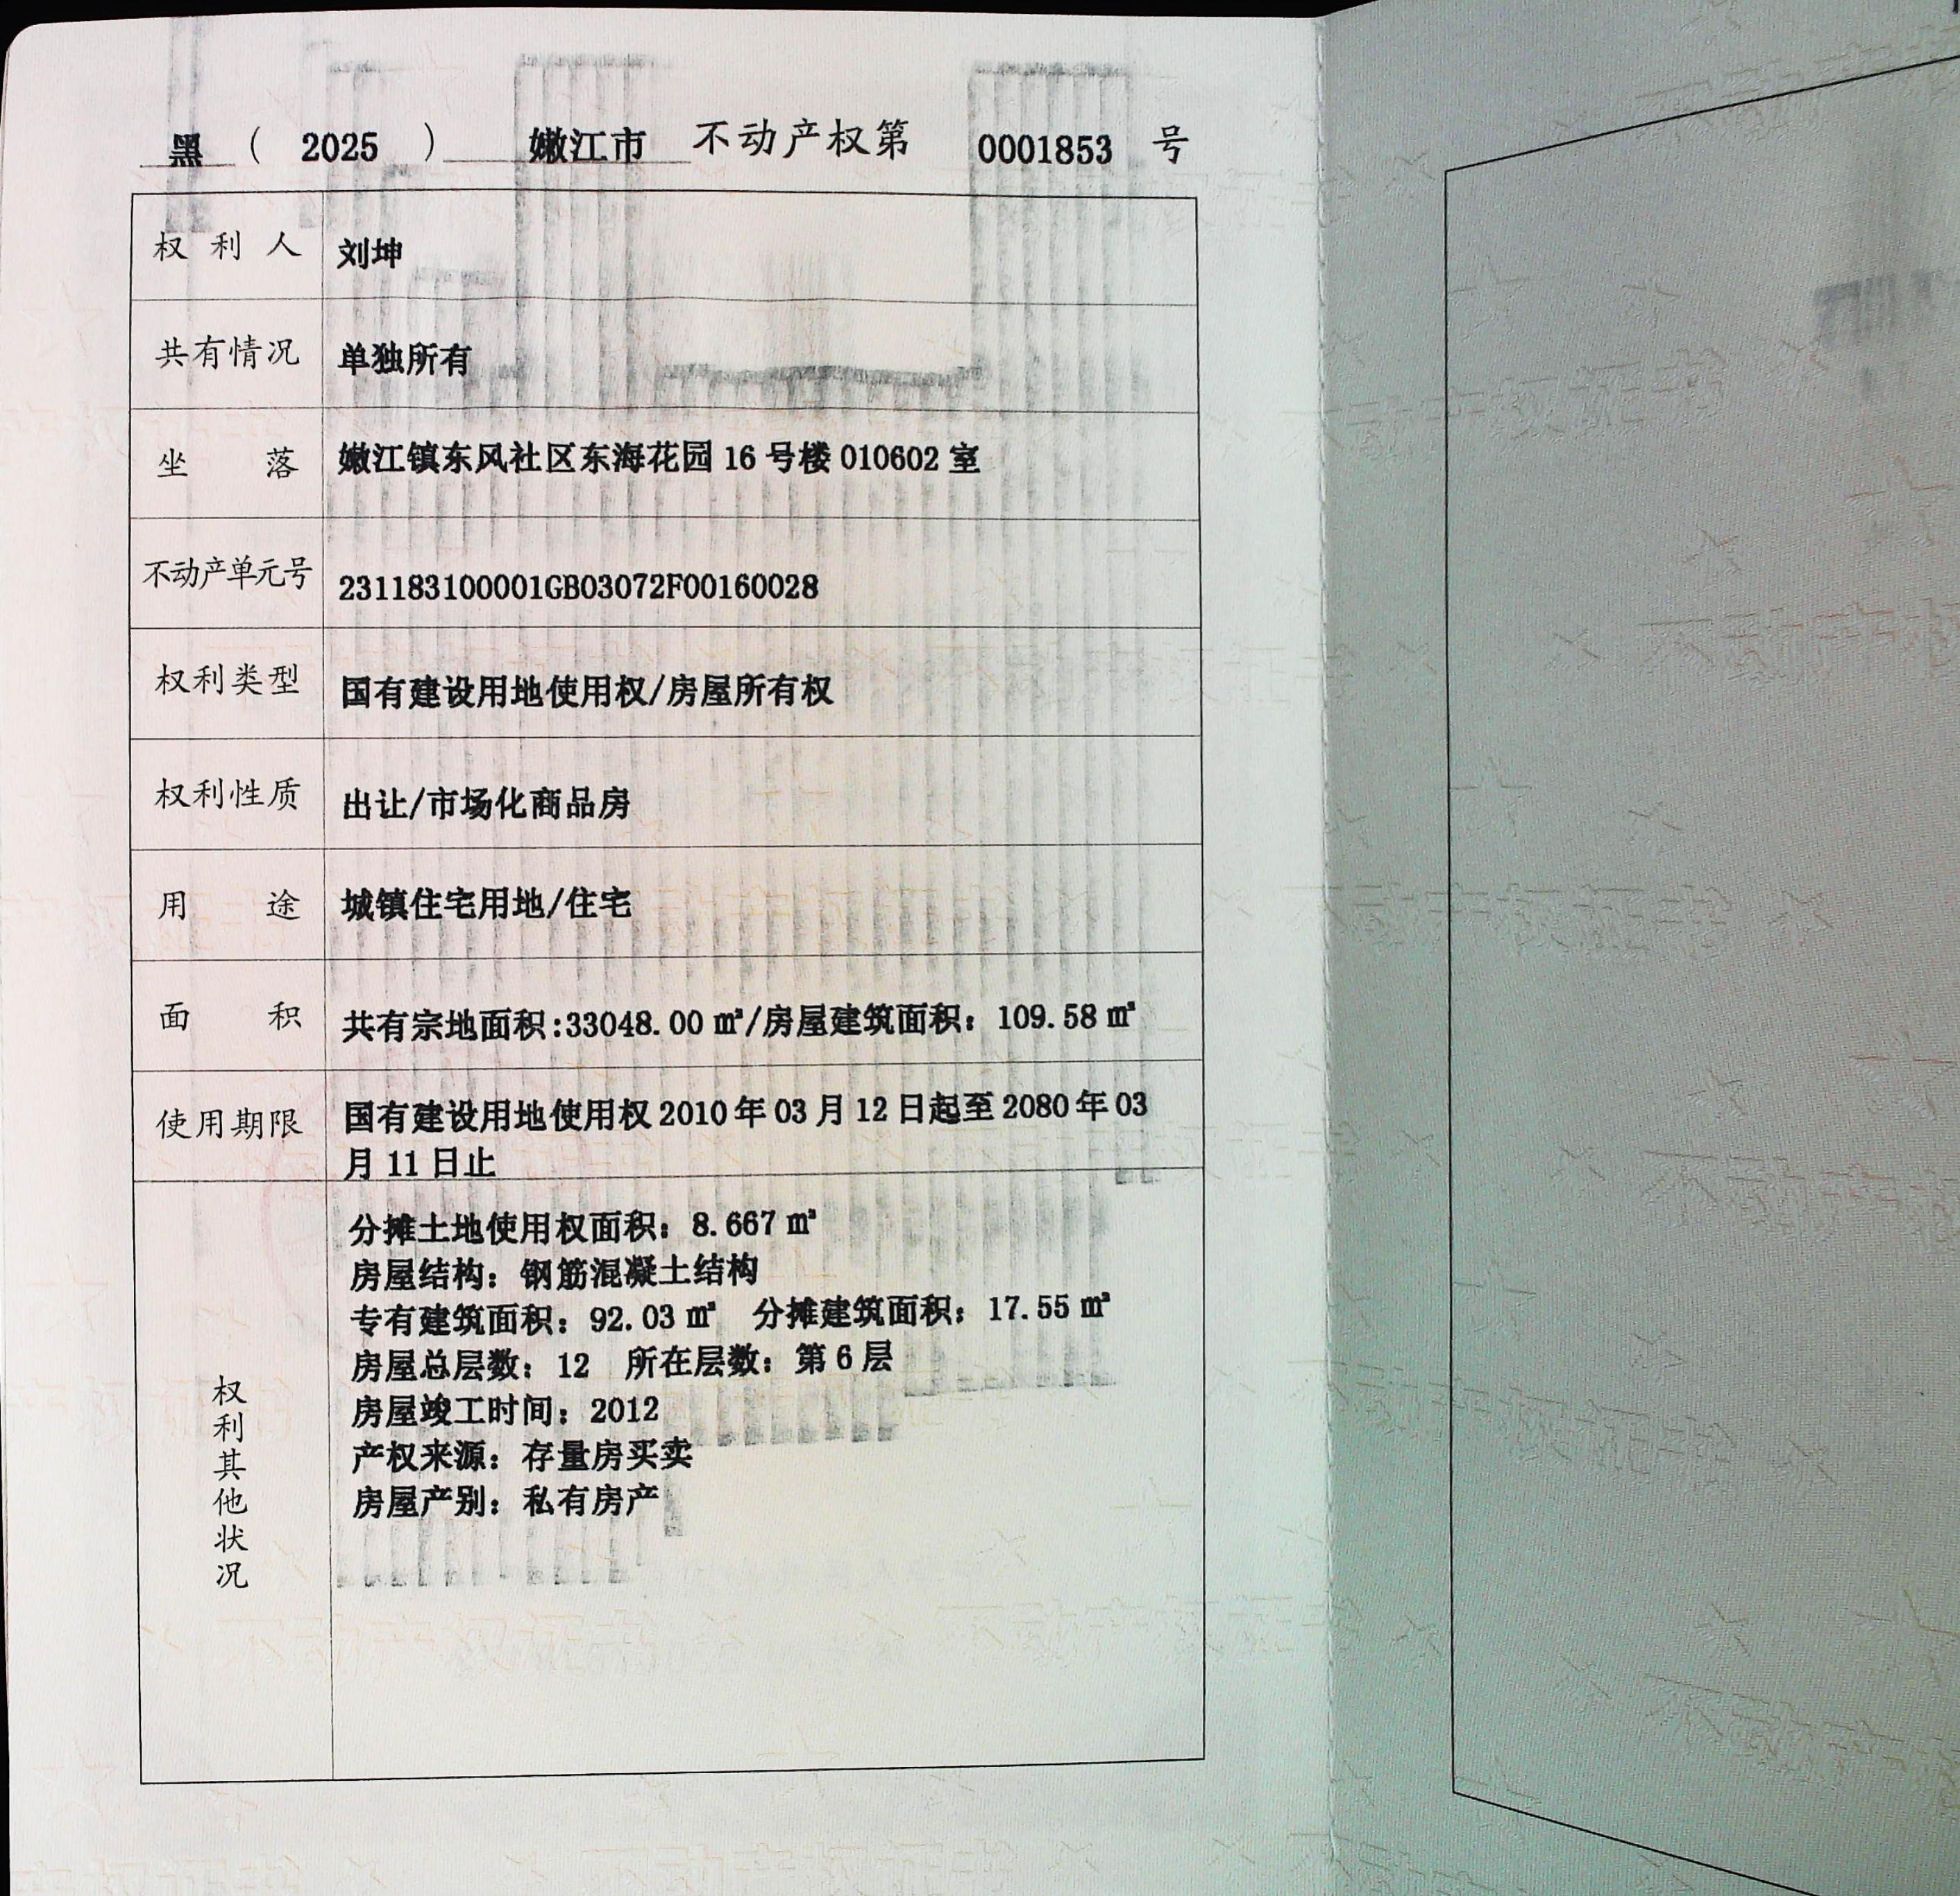 黑 ( 2025 ) 嫩江市 不动产权第 0001853 号
权利人 刘坤
共有情况 单独所有
坐落 嫩江镇东风社区东海花园 16 号楼 010602 室
不动产单元号 231183100001GB03072F00160028
权利类型 国有建设用地使用权/房屋所有权
权利性质 出让/市场化商品房
用途 城镇住宅用地/住宅
面积 共有宗地面积:33048.00 ㎡/房屋建筑面积：109.58 ㎡
使用期限 国有建设用地使用权 2010 年 03 月 12 日起至 2080 年 03
月 11 日止
权利其他状况
分摊土地使用权面积：8.667 ㎡
房屋结构：钢筋混凝土结构
专有建筑面积：92.03 ㎡ 分摊建筑面积：17.55 ㎡
房屋总层数：12 所在层数：第 6 层
房屋竣工时间：2012
产权来源：存量房买卖
房屋产别：私有房产